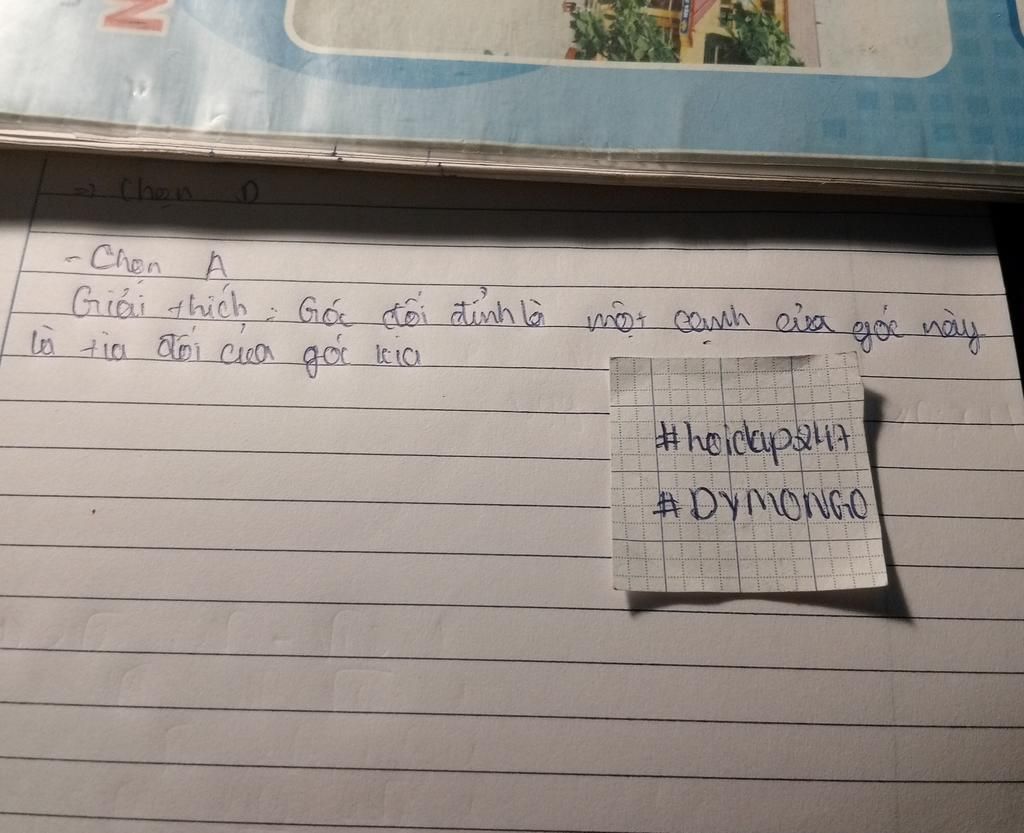 N
=> Chọn D
- Chọn A
Giải thích : Góc đối đỉnh là một cạnh của góc này
là tia đối của góc kia
#hoidap247
#DYMONGO